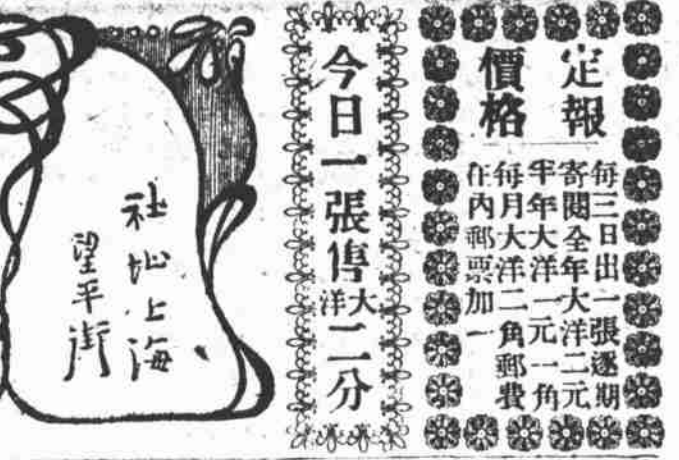 定報
價格
每三日出一張逐期
寄閱全年大洋二元
半年大洋一元一角
每月大洋二角郵費
在內郵票加一
今日一張售大洋二分
社址上海
望平街